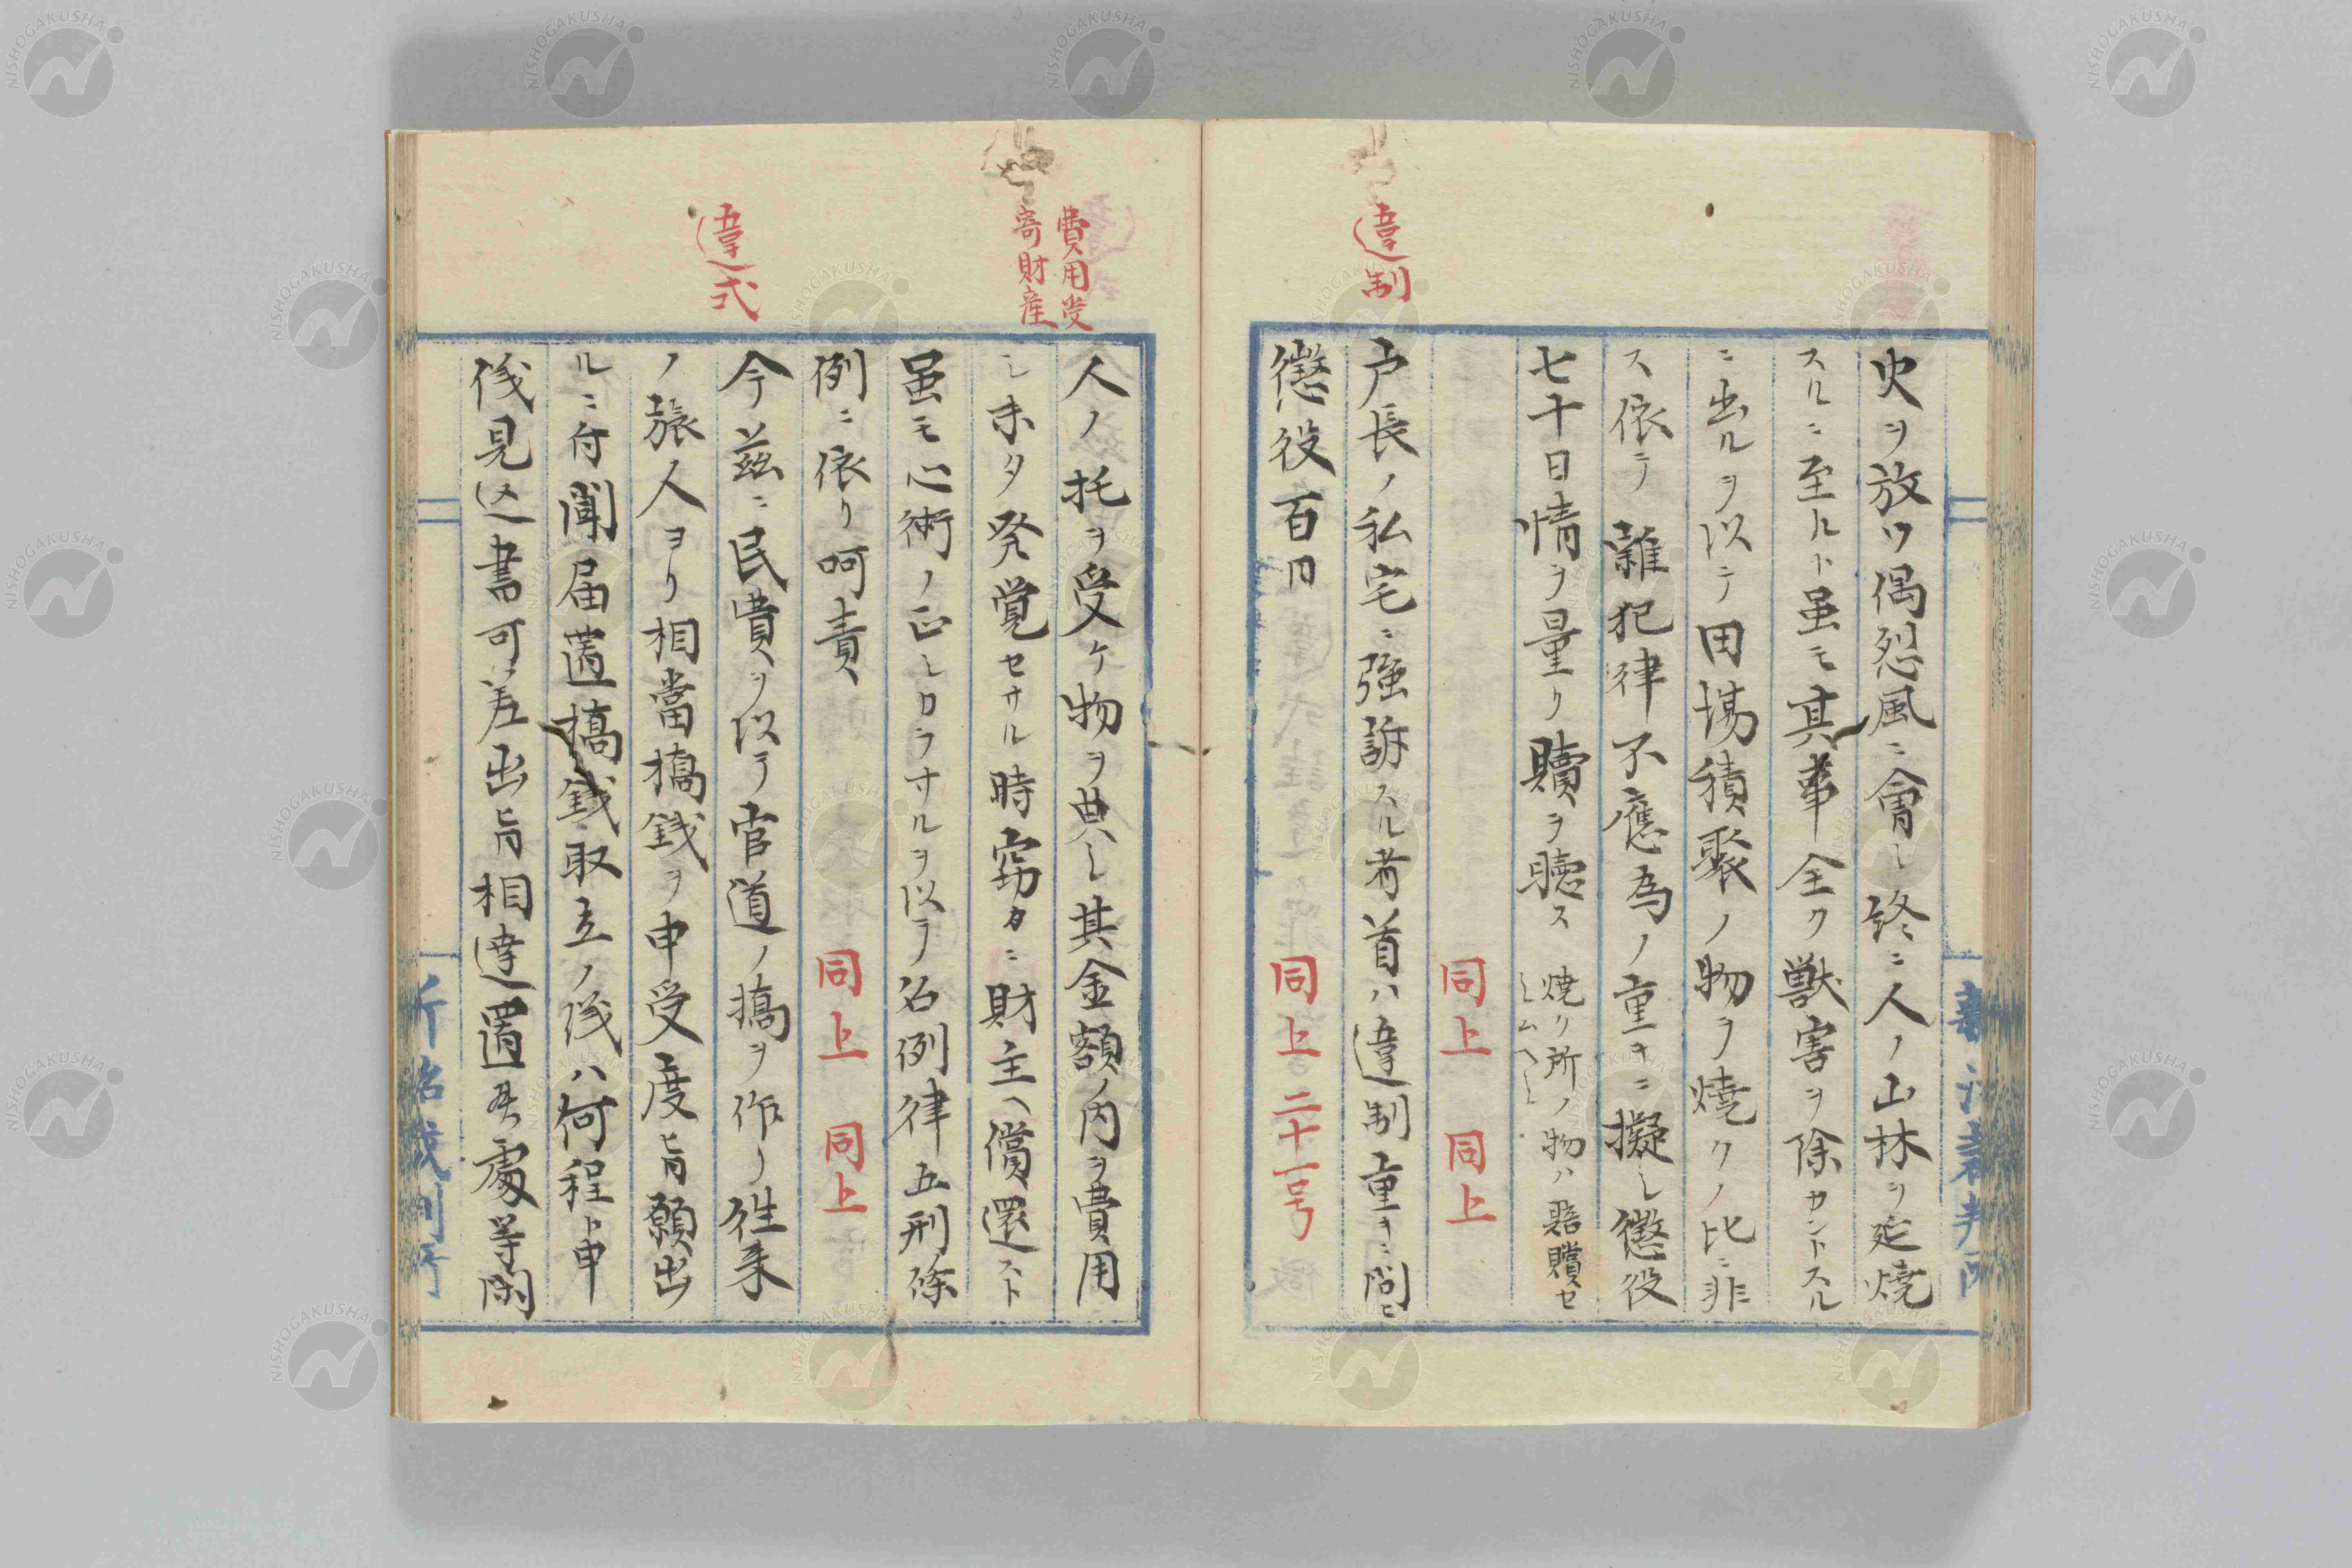 火ヲ放ツ偶烈風ニ會シ終ニ人ノ山林ヲ延焼
スルニ至ルト虽モ其事全ク獣害ヲ除カントスル
ニ出ルヲ以テ田場積聚ノ物ヲ焼クノ比ニ非
ス依テ雜犯律不應為ノ重キニ擬シ懲役
七十日情ヲ量リ贖ヲ聴ス
焼ク所ノ物ハ賠贖セ
シムヘシ
同上 同上
違制
戸長ノ私宅ニ強訴スル者首ハ違制重キニ問ヒ
懲役百日
同上 二十一号
費用受
寄財産
人ノ托ヲ受ケ物ヲ典シ其金額ノ内ヲ費用
シ未タ発覚セサル時窃カニ財主ヘ償還スト
虽モ心術ノ正シカラサルヲ以テ名例律五刑條
例ニ依リ呵責
同上 同上
違式
今茲ニ民費ヲ以テ官道ノ橋ヲ作リ徃来
ノ旅人ヨリ相當橋銭ヲ申受度旨願出
ルニ付聞届置橋銭取立ノ儀ハ何程ト申
儀見込書可差出旨相達置候處等閑
NISHOGAKUSHA